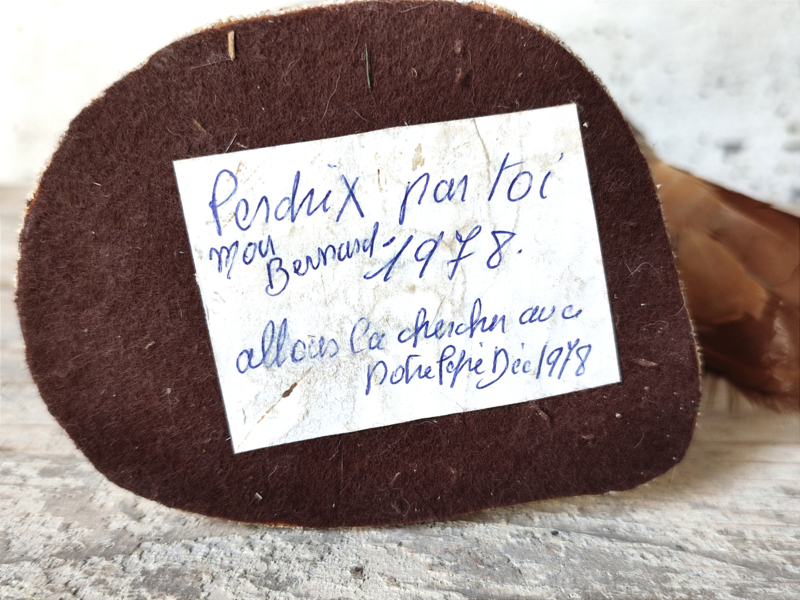 Perdrix par toi
mon
Bernard - 1978.
allons la chercher avec
notre Pépé Déc 1978